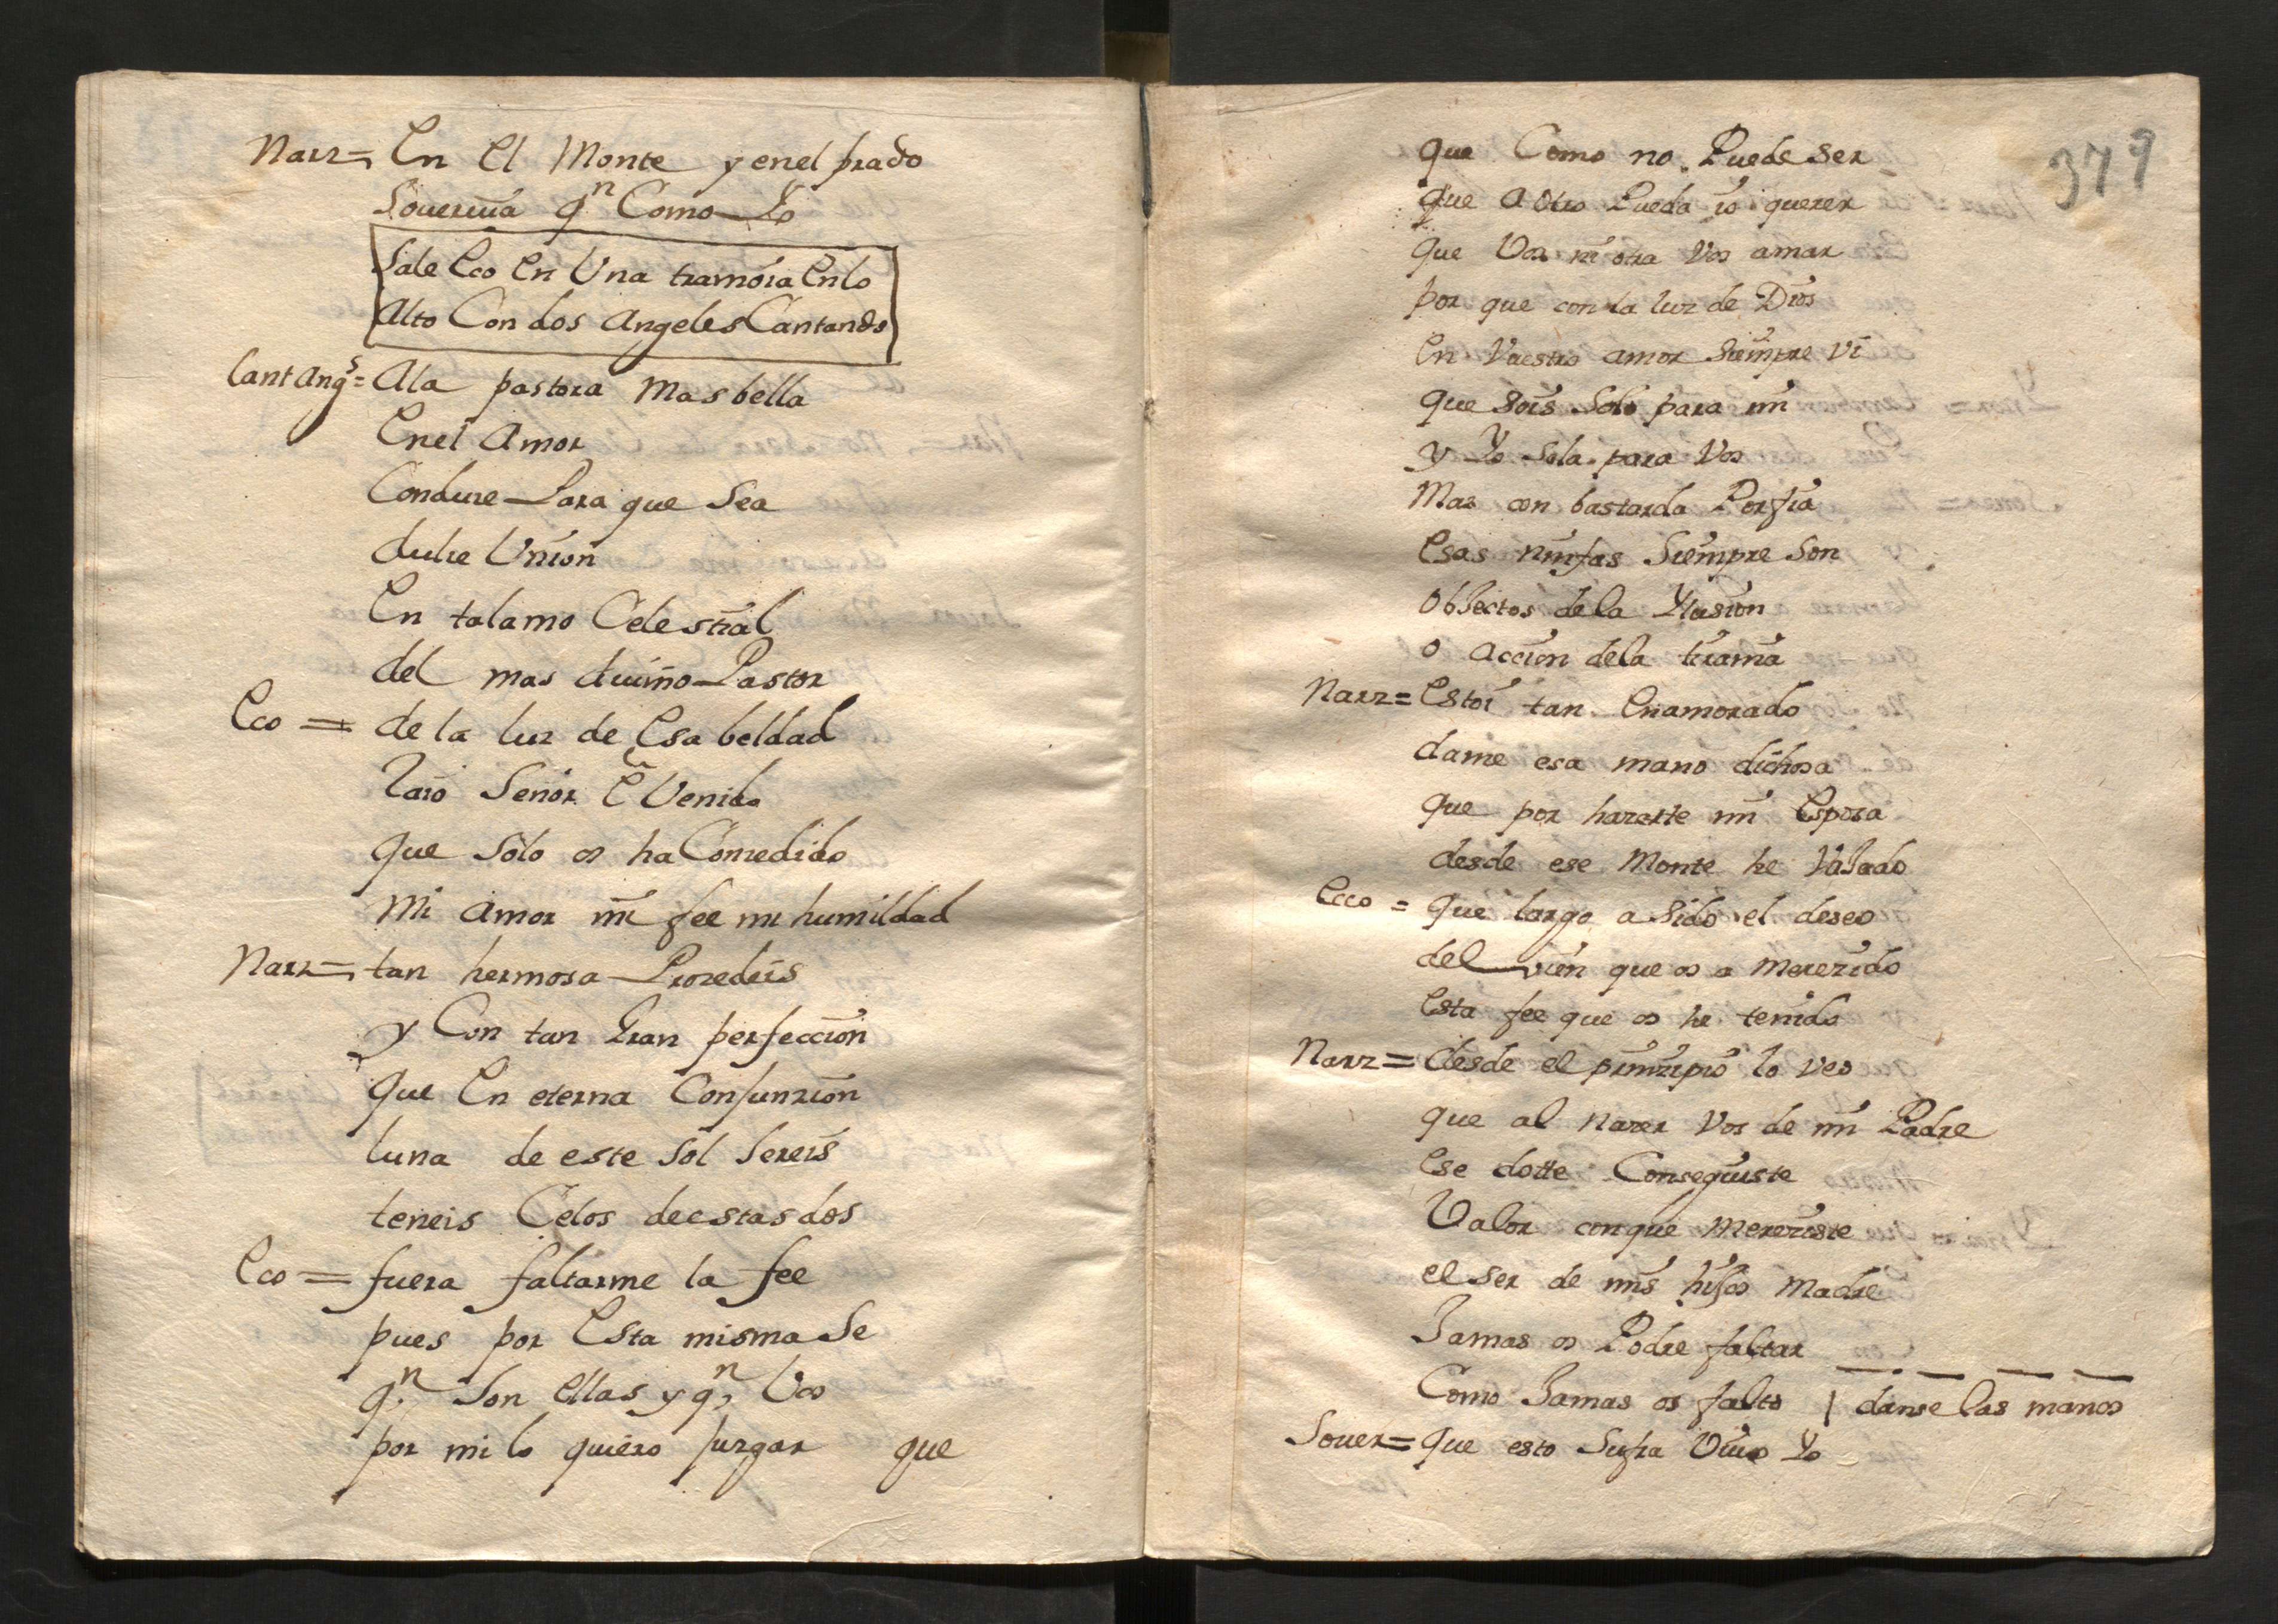 Narz= En El Monte y en el prado
Souervia qn Como Yo
Sale Eco En Una tramoia En lo
Alto Con dos Angeles Cantando
Cant Angs= A la pastora Mas bella
En el Amor
Conduce Para que Sea
dulce Union
En talamo Celestial
del mas diuino Pastor
Eco = de la luz de Esa beldad
Raio Señor E Venido
que Solo os ha Concedido
Mi Amor mi fee mi humildad
Narz= tan hermosa Procedeis
y Con tan Gran perfeccion
que En eterna Conjunzion
luna de este Sol Sereis
teneis Celos de estas dos
Eco = fuera faltarme la fee
pues por Esta misma Se
qn Son Ellas y qn Vos
por mi lo quiero juzgar que
379
que Como no Puede Ser
que a Otro Pueda io querer
que Vos ni otra Vos amar
por que con la luz de Dios
En Vuestro amor Siempre Vi
que Sois Solo para mi
y Yo Sola para Vos
Mas con bastarda Porfia
Esas ninfas Siempre Son
objectos de la Ylusion
o accion de la tirania
Narz= Estoi tan Enamorado
dame esa mano dichosa
que por hazerte mi Esposa
desde ese Monte he Vajado
Ecco = que largo a Sido el deseo
del vien que os a Merezido
Esta fee que os he tenido
Narz= desde el prinzipio lo Veo
que al Nazer Vos de mi Padre
Ese dotte Conseguiste
Valor con que Mereziste
el Ser de mis hijos Madre
Jamas os Podre faltar
Como Jamas os falto | danse las manos
Souer= que esto Sufra Viuo Yo